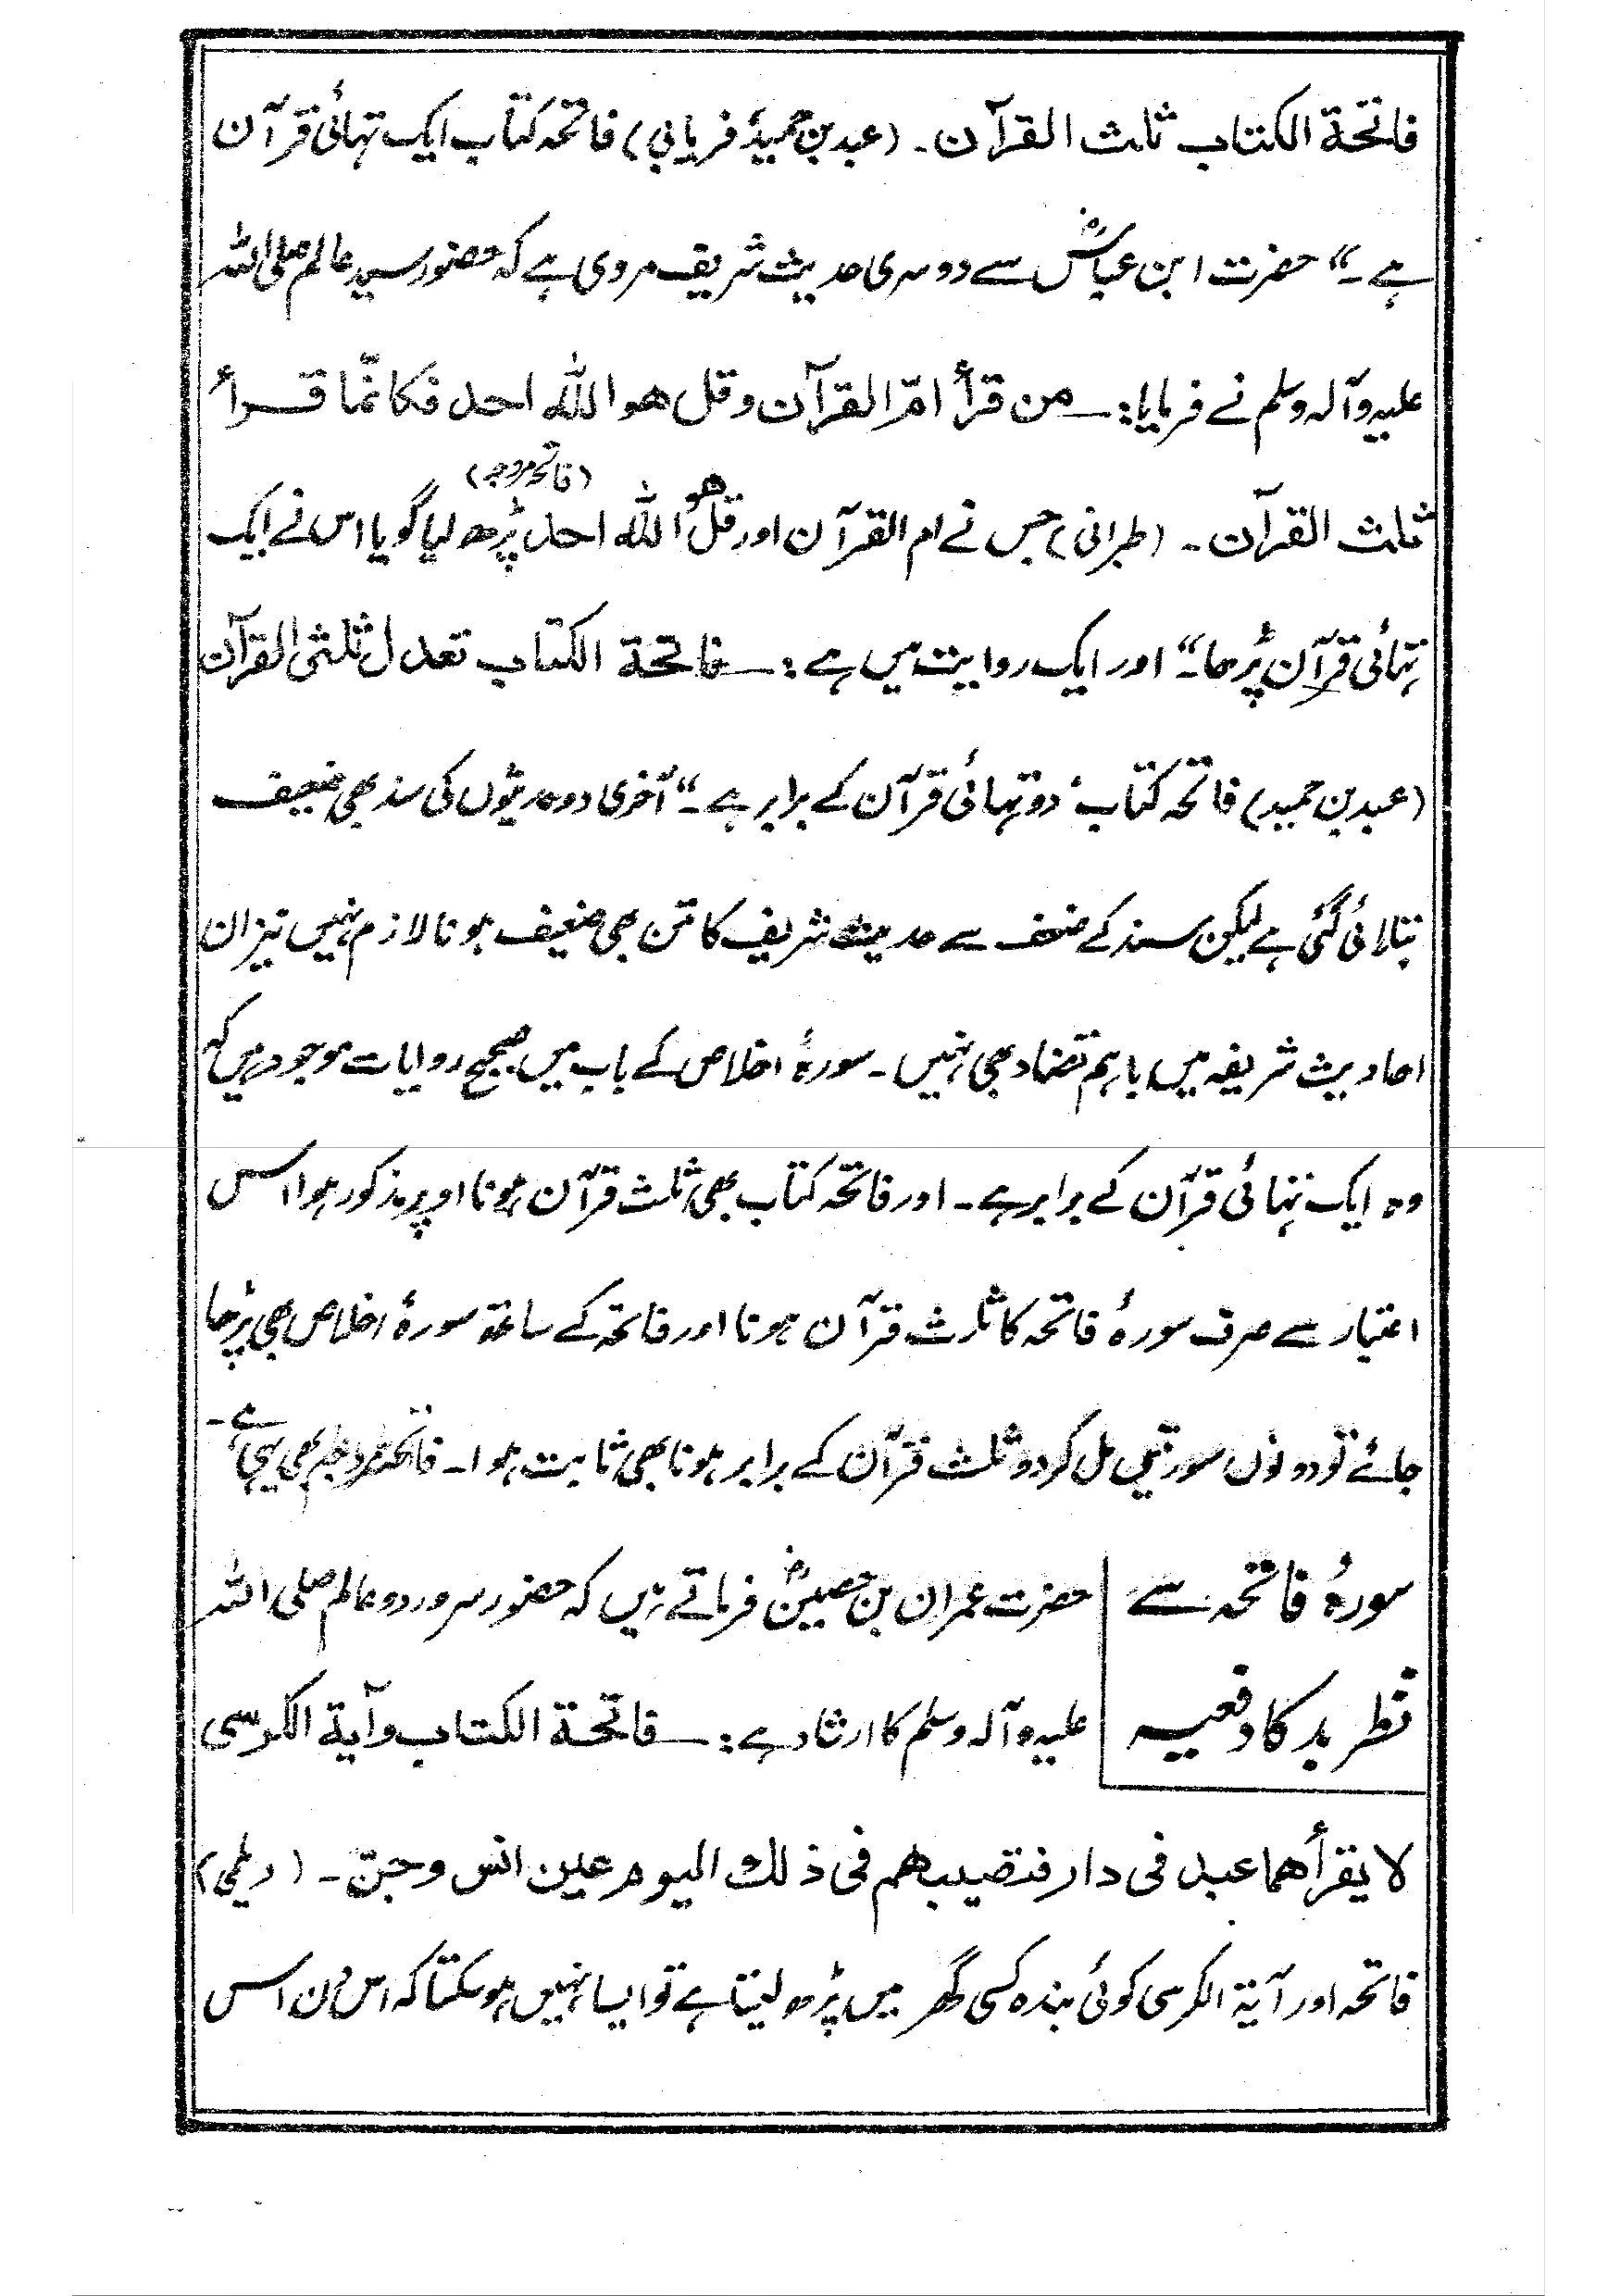 فاتحة الکتاب ثلث القرآن۔ (عبد بن حمیدؒ فریابی) فاتحہ کتاب ایک تہائی قرآن
ہے۔" حضرت ابن عباسؓ سے دوسری حدیث شریف مروی ہے کہ حضور سید عالم صلی اللہ
علیہ وآلہ وسلم نے فرمایا:۔ من قرأ امّ القرآن وقل ھو اللّٰہ احد فکانّما قرأ
(فاتحہ مروجہ)
ثلث القرآن۔ (طبرانی) جس نے ام القرآن اور قل ھو اللّٰہ احد پڑھ لیا گویا اس نے ایک
تہائی قرآن پڑھا۔" اور ایک روایت میں ہے:۔ فاتحة الکتاب تعدل ثلثی القرآن
(عبد بن حمید) فاتحہ کتاب، دو تہائی قرآن کے برابر ہے۔" آخری دو حدیثوں کی سند بھی ضعیف
بتلائی گئی ہے لیکن سند کے ضعف سے حدیث شریف کا متن بھی ضعیف ہونا لازم نہیں نیز ان
احادیث شریفہ میں باہم تضاد بھی نہیں۔ سورۂ اخلاص کے باب میں صحیح روایات موجود ہیں کہ
وہ ایک تہائی قرآن کے برابر ہے۔ اور فاتحہ کتاب بھی ثلث قرآن ہونا اوپر مذکور ہوا اس
اعتبار سے صرف سورۂ فاتحہ کا ثلث قرآن ہونا اور فاتحہ کے ساتھ سورۂ اخلاص بھی پڑھا
جائے تو دونوں سورتیں مل کر دو ثلث قرآن کے برابر ہونا بھی ثابت ہوا۔ فاتحہ مروجہ بھی یہی ہے۔
سورۂ فاتحہ سے
نظر بد کا دفعیہ
حضرت عمران بن حصینؓ فرماتے ہیں کہ حضور سرور دو عالم صلی اللہ
علیہ وآلہ وسلم کا ارشاد ہے:۔ فاتحة الکتاب وآیة الکرسی
لا یقرأھما عبد فی دار فتصیبھم فی ذلك الیوم عین انس وجنّ۔ (دیلمی)
فاتحہ اور آیۃ الکرسی کوئی بندہ کسی گھر میں پڑھ لیتا ہے تو ایسا نہیں ہو سکتا کہ اس دن اس